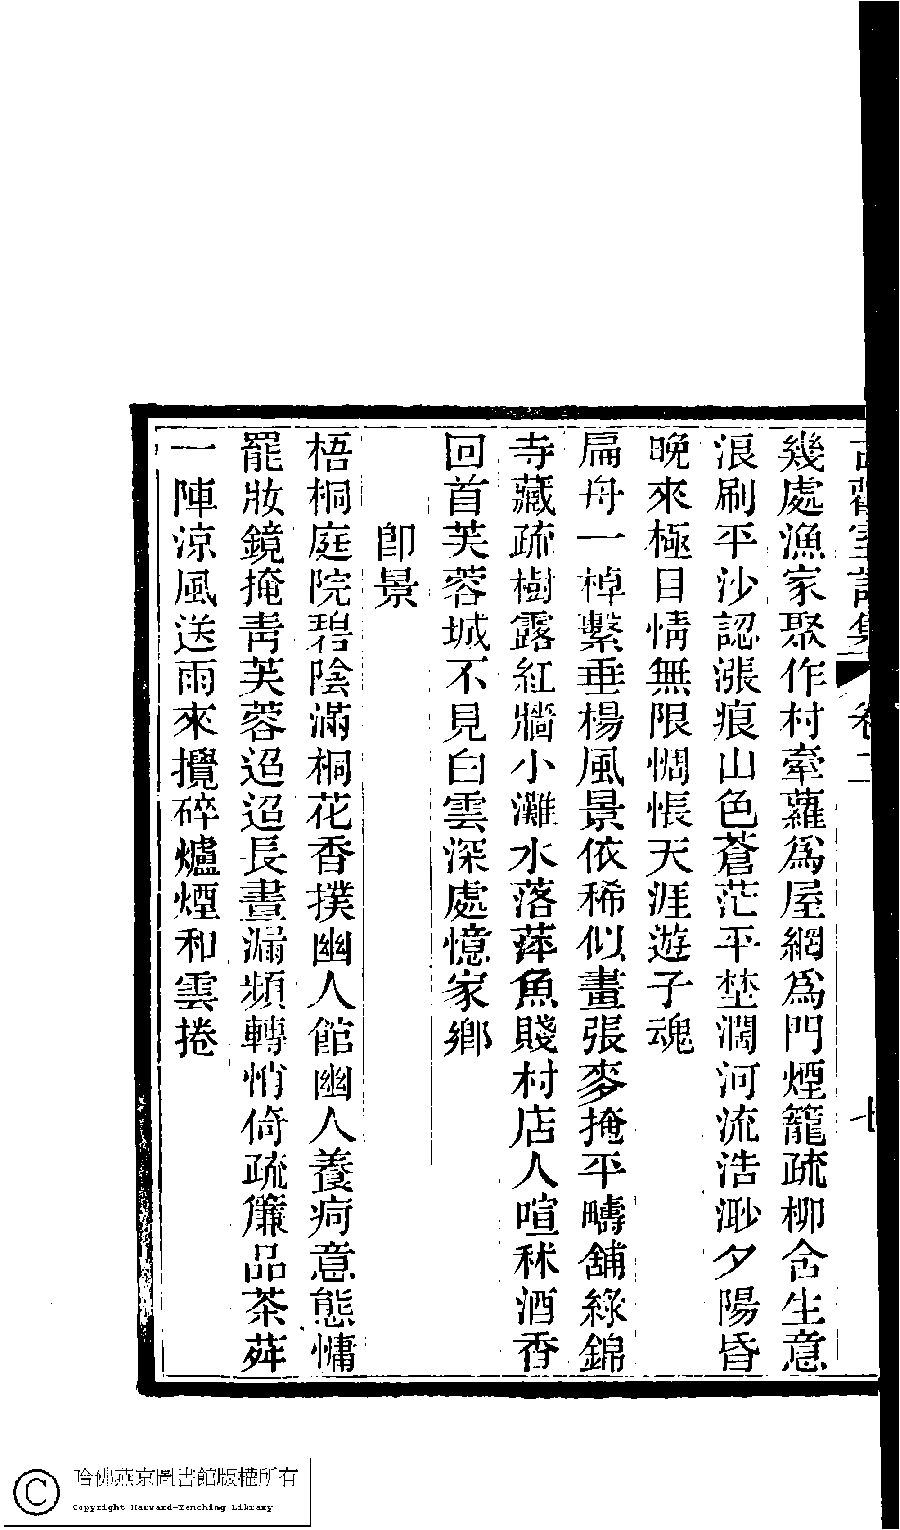 幾處漁家聚作村牽蘿爲屋網爲門煙籠疏柳含生意
浪刷平沙認漲痕山色蒼茫平埜濶河流浩渺夕陽昏
晚來極目情無限惆悵天涯遊子魂
扁舟一棹繫垂楊風景依稀似畫張麥掩平疇舖綠錦
寺藏疏樹露紅牆小灘水落萍魚賤村店人喧秫酒香
回首芙蓉城不見白雲深處憶家鄉
卽景
梧桐庭院碧陰滿桐花香撲幽人館幽人養疴意態慵
罷妝鏡掩靑芙蓉迢迢長晝漏頻轉悄倚疏簾品茶荈
一陣涼風送雨來攪碎爐煙和雲捲
哈佛燕京圖書館版權所有
Copyright Harvard-Yenching Library